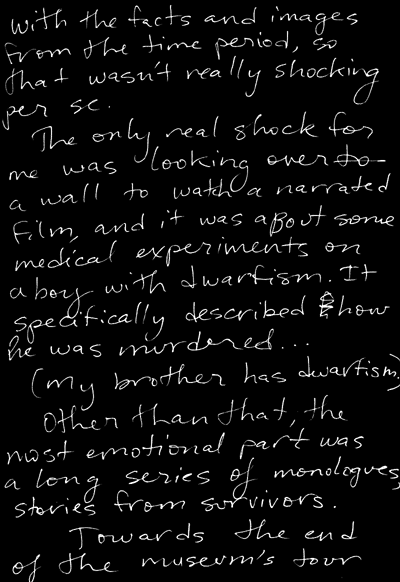 with the facts and images
from the time period, so
that wasn't really shocking
per se.
The only real shock for
me was looking over to
a wall to watch a narrated
film, and it was about some
medical experiments on
a boy with dwarfism. It
specifically described how
he was murdered...
(my brother has dwarfism)
Other than that, the
most emotional part was
a long series of monologues,
stories from survivors.
Towards the end
of the museum's tour